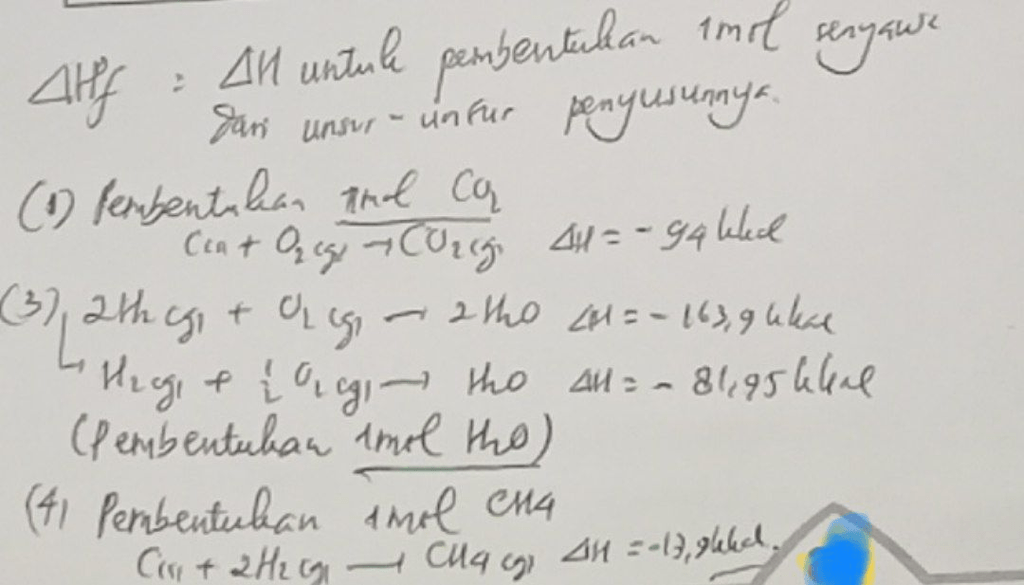 ΔHf : ΔH untuk pembentukan 1 mol senyawa
dari unsur-unsur penyusunnya.
(1) Pembentukan 1mol CO2
C(s) + O2(g) → CO2(g) ΔH = -94 kkal
(3) 2H2(g) + O2(g) → 2H2O ΔH = -163,9 kkal
↳ H2(g) + 1/2 O2(g) → H2O ΔH = -81,95 kkal
(Pembentukan 1mol H2O)
(4) Pembentukan 1 mol CH4
C(s) + 2H2(g) → CH4(g) ΔH = -17,9 kkal.